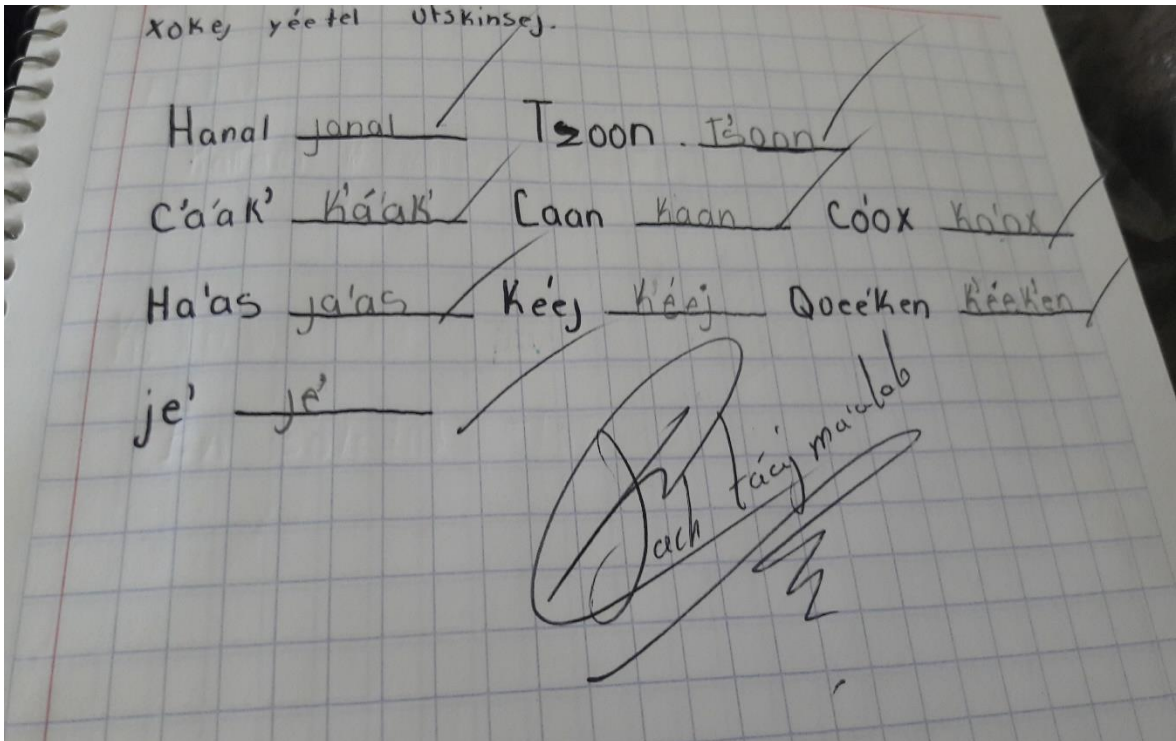 xokej yéetel utskinsej.
Hanal janal Tzoon. Ts'oon
C'áak' K'áak' Caan Kaan Cóox Ko'ox
Ha'as ja'as Kéej Kéej Qoeéken K'éek'en
je' je'
Jach táaj ma'alob